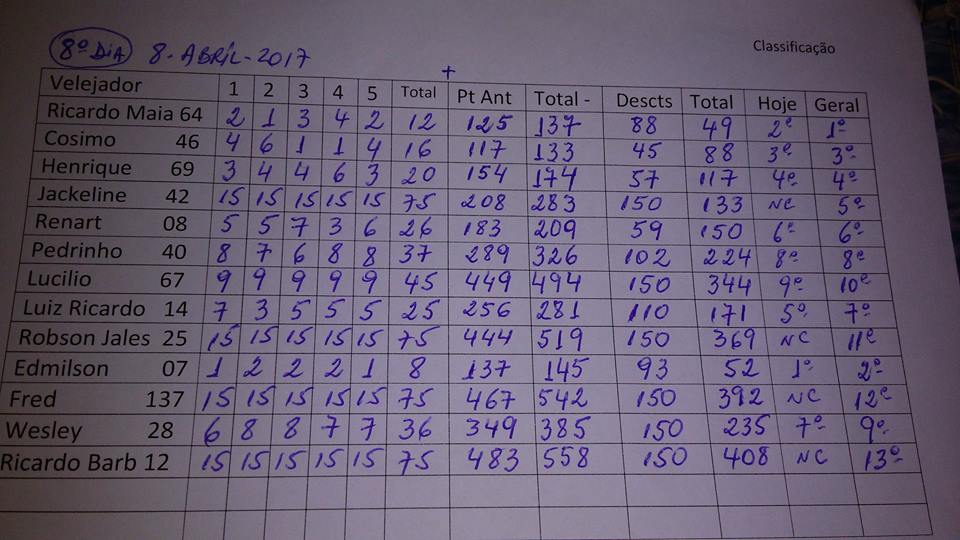 8º DIA 8 - ABRIL - 2017
Classificação
+
Velejador 1 2 3 4 5 Total Pt Ant Total - Descts Total Hoje Geral
Ricardo Maia 64 2 1 3 4 2 12 125 137 88 49 2º 1º
Cosimo 46 4 6 1 1 4 16 117 133 45 88 3º 3º
Henrique 69 3 4 4 6 3 20 154 174 57 117 4º 4º
Jackeline 42 15 15 15 15 15 75 208 283 150 133 NC 5º
Renart 08 5 5 7 3 6 26 183 209 59 150 6º 6º
Pedrinho 40 8 7 6 8 8 37 289 326 102 224 8º 8º
Lucilio 67 9 9 9 9 9 45 449 494 150 344 9º 10º
Luiz Ricardo 14 7 3 5 5 5 25 256 281 110 171 5º 7º
Robson Jales 25 15 15 15 15 15 75 444 519 150 369 NC 11º
Edmilson 07 1 2 2 2 1 8 137 145 93 52 1º 2º
Fred 137 15 15 15 15 15 75 467 542 150 392 NC 12º
Wesley 28 6 8 8 7 7 36 349 385 150 235 7º 9º
Ricardo Barb 12 15 15 15 15 15 75 483 558 150 408 NC 13º